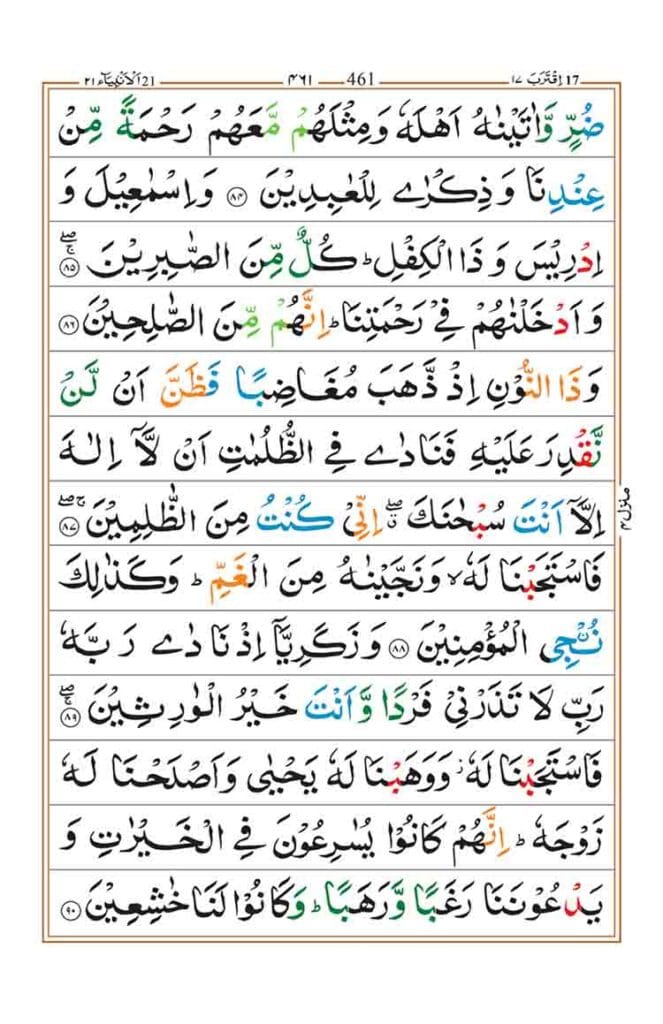 17 اِقْتَرَبَ ١٧ ٤٦١ 461 21 اَلْاَنْۢبِيَآء ٢١
ضُرٍّ وَّاٰتَيْنٰهُ اَهْلَهٗ وَمِثْلَهُمْ مَّعَهُمْ رَحْمَةً مِّنْ
عِنْدِنَا وَذِكْرٰى لِلْعٰبِدِيْنَ ۝٨٤ وَاِسْمٰعِيْلَ وَ
اِدْرِيْسَ وَذَا الْكِفْلِ ؕ كُلٌّ مِّنَ الصّٰبِرِيْنَ ۝٨٥ ۚۖ
وَاَدْخَلْنٰهُمْ فِيْ رَحْمَتِنَا ؕ اِنَّهُمْ مِّنَ الصّٰلِحِيْنَ ۝٨٦
وَذَا النُّوْنِ اِذْ ذَّهَبَ مُغَاضِبًا فَظَنَّ اَنْ لَّنْ
نَّقْدِرَ عَلَيْهِ فَنَادٰى فِي الظُّلُمٰتِ اَنْ لَّاۤ اِلٰهَ
اِلَّاۤ اَنْتَ سُبْحٰنَكَ ۖۗ اِنِّيْ كُنْتُ مِنَ الظّٰلِمِيْنَ ۝٨٧ ۚۖ
فَاسْتَجَبْنَا لَهٗ ۙ وَنَجَّيْنٰهُ مِنَ الْغَمِّ ؕ وَكَذٰلِكَ
نُـْۨجِي الْمُؤْمِنِيْنَ ۝٨٨ وَزَكَرِيَّاۤ اِذْ نَادٰى رَبَّهٗ
رَبِّ لَا تَذَرْنِيْ فَرْدًا وَّاَنْتَ خَيْرُ الْوٰرِثِيْنَ ۝٨٩ ۚۖ
فَاسْتَجَبْنَا لَهٗ ؗ وَوَهَبْنَا لَهٗ يَحْيٰى وَاَصْلَحْنَا لَهٗ
زَوْجَهٗ ؕ اِنَّهُمْ كَانُوْا يُسٰرِعُوْنَ فِي الْخَيْرٰتِ وَ
يَدْعُوْنَنَا رَغَبًا وَّرَهَبًا ؕ وَكَانُوْا لَنَا خٰشِعِيْنَ ۝٩٠
منزل ٤